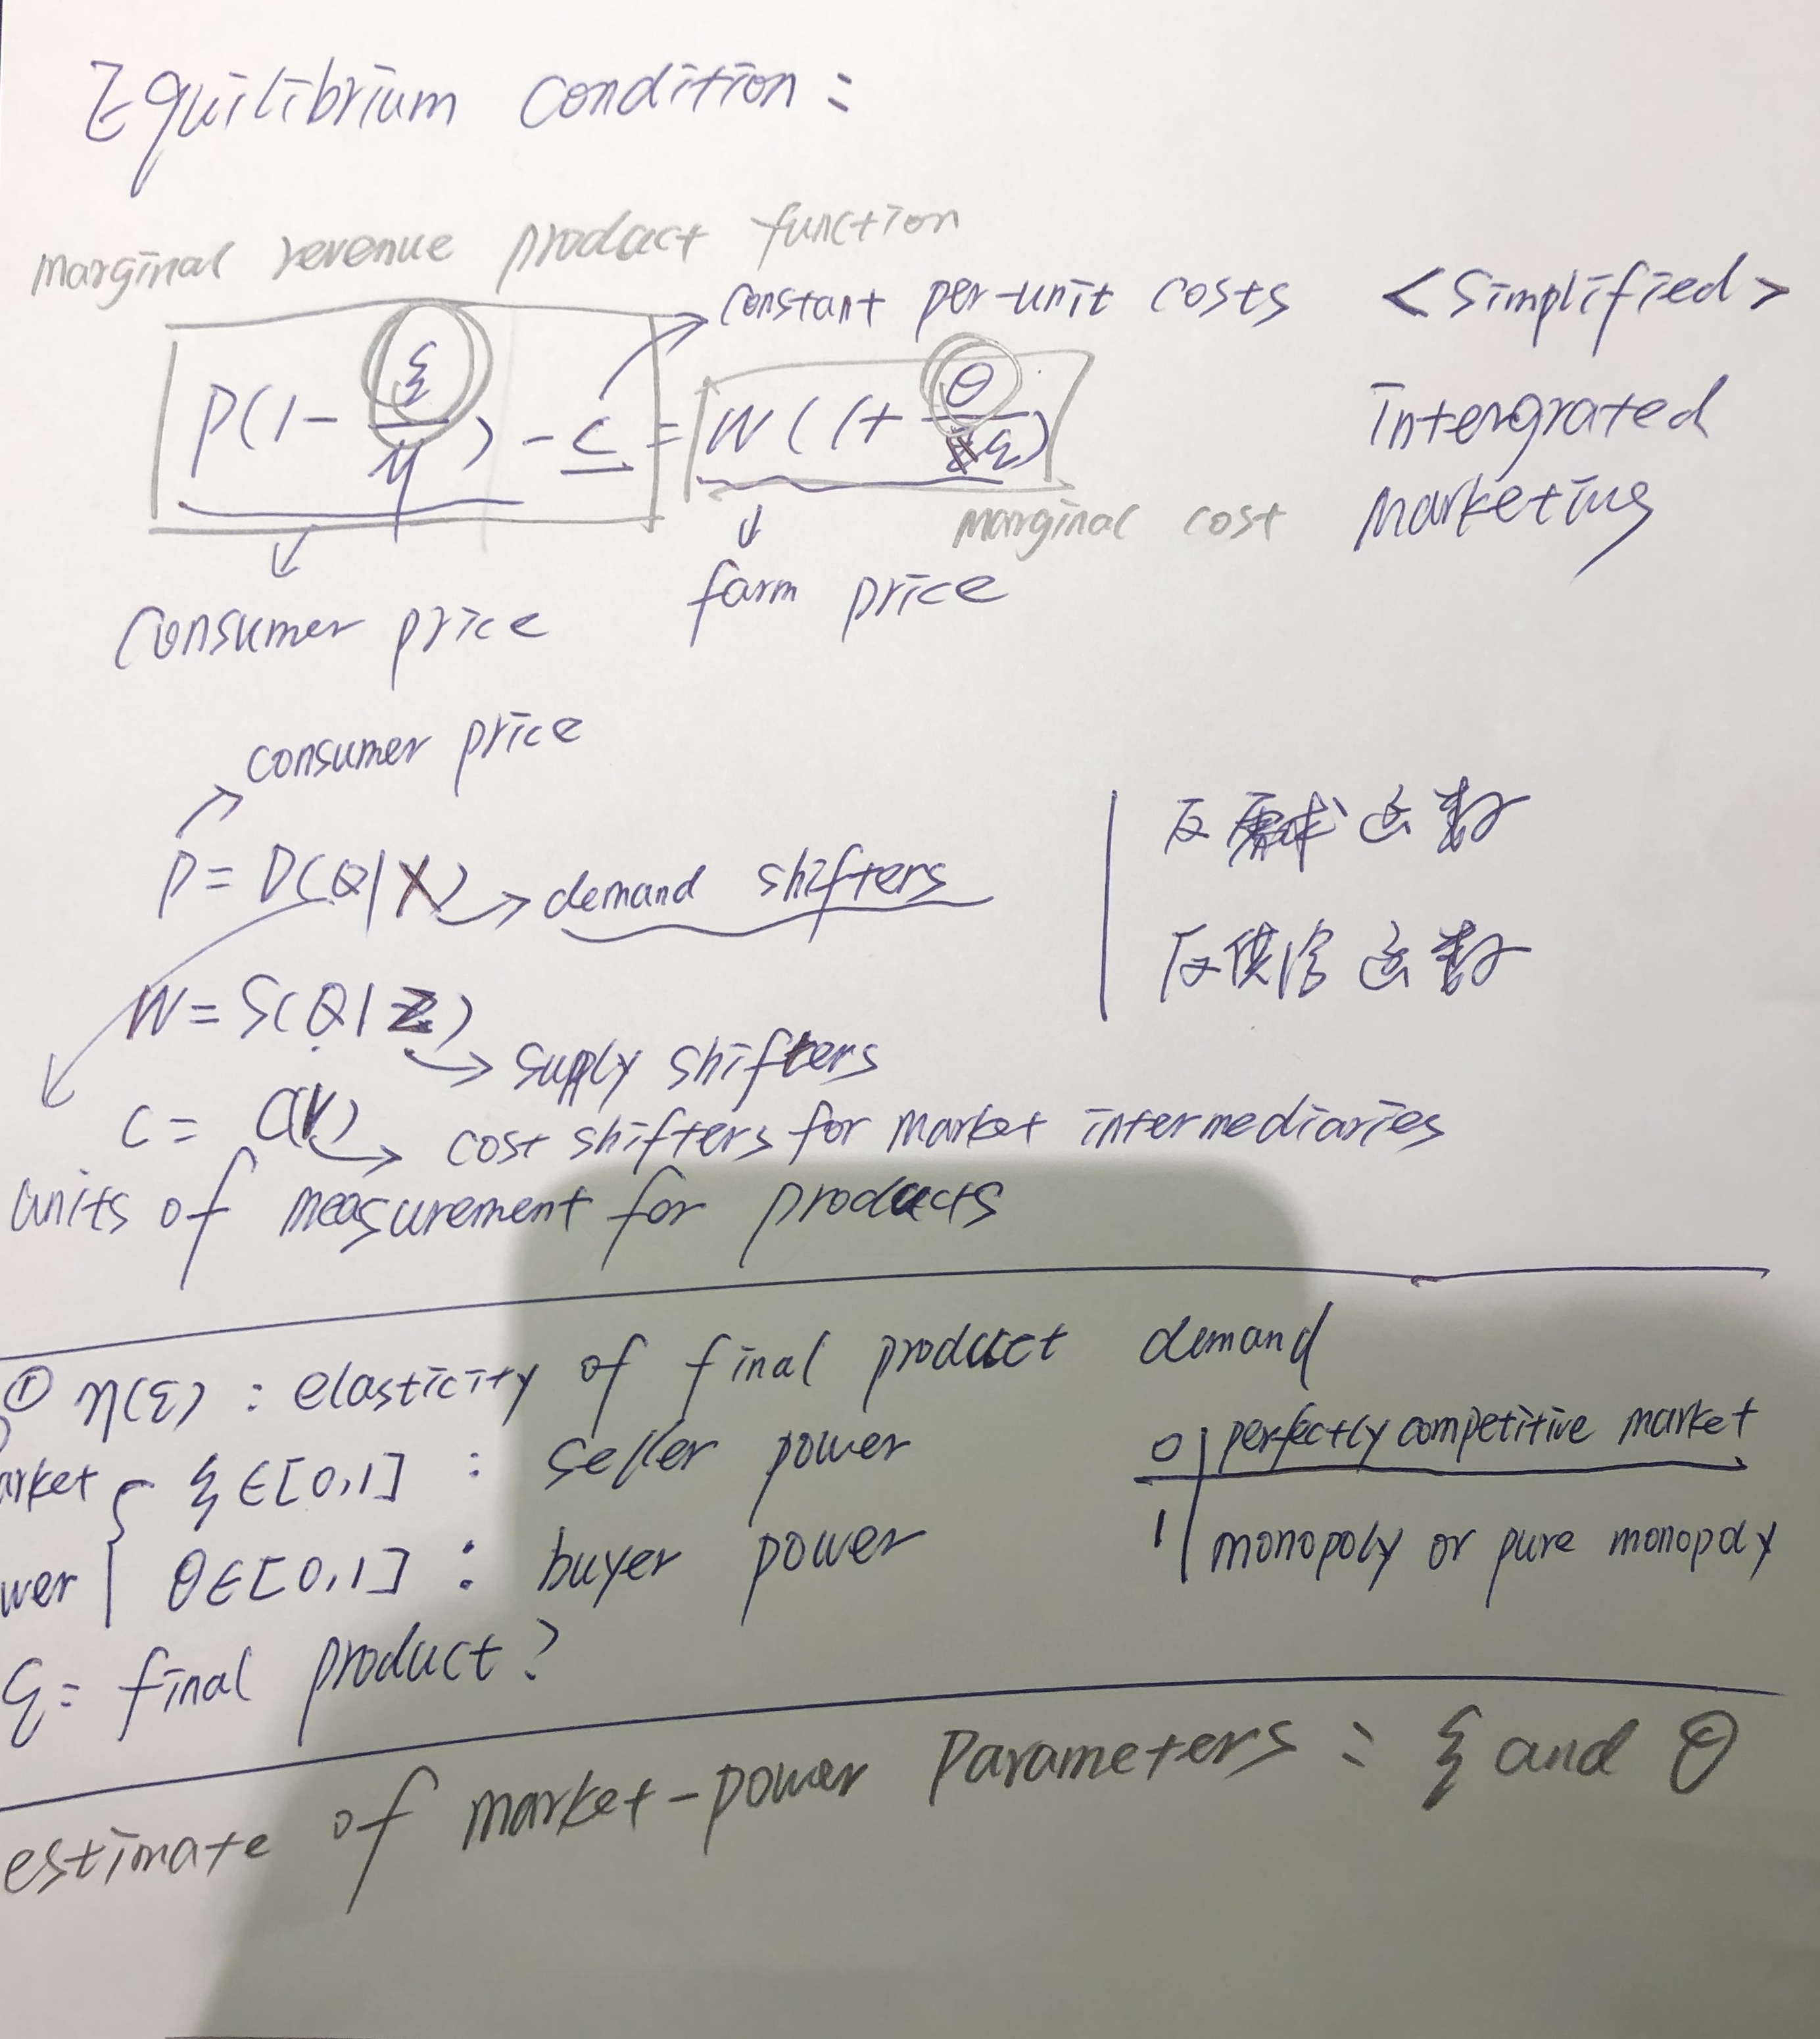 Equilibrium condition :
marginal revenue product function
constant per-unit costs <Simplified>
P(1 - ξ/η) - c = W(1 + θ/ε)
intergrated
marketing
marginal cost
consumer price
farm price
consumer price
P = D(Q|X) → demand shifters
反需求函数
W = S(Q|Z)
反供给函数
supply shifters
c = C(V) → cost shifters for market intermediaries
units of measurement for products
① η(ε) : elasticity of final product demand
arket { ξ ∈ [0,1] : seller power
0 | perfectly competitive market
wer θ ∈ [0,1] : buyer power
1 | monopoly or pure monopoly
ξ = final product ?
estimate of market-power Parameters = ξ and θ